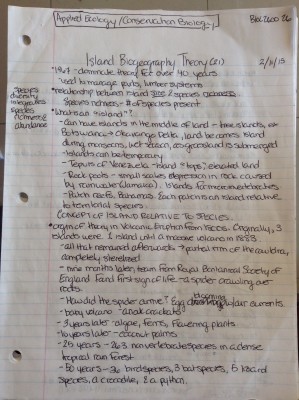 Applied Ecology/Conservation Biology
Island Biogeography Theory (21)
2/11/13
dominate theory for over 40 years
used to manage parks, timber systems
Species
diversity
integrates
species
richness &
abundance
*relationship between island size & species richness
Species richness - # of species present
*What is an "island"?
-Can have islands in the middle of land - tree islands, ex
Botswana → Okavango Delta, land becomes island
during monsoons, wet season, bc grassland is submerged
-Islands can be temporary
-Tepuis of Venezuela - island tops; elevated land
-Rock pools - small scale depression in rock caused
by rainwater (Jamaica). Islands for invertebrates
-Patch Reefs, Bahamas. Each patch is an island relative
to terrestrial species
CONCEPT OF ISLAND RELATIVE TO SPECIES
*origin of theory in Volcanic Eruption from 1800s. Originally, 3
islands were 1 island w/ a massive volcano in 1883
-all that remained afterwards → partial rim of the cauldera,
completely sterelized
-nine months later, team from Royal Botanical Society of
England found first sign of life → a spider crawling over
rocks.
-How did the spider arrive? Egg ballooning over currents
-baby volcano "anak crackatoa"
-3 years later - algae, ferns, flowering plants
-10 years later - coconut palms
-25 years - 263 nonvertebrate species in a dense
tropical rain forest
-50 years - 36 bird species, 3 bat species, 5 lizard
species, a crocodile, & a python.